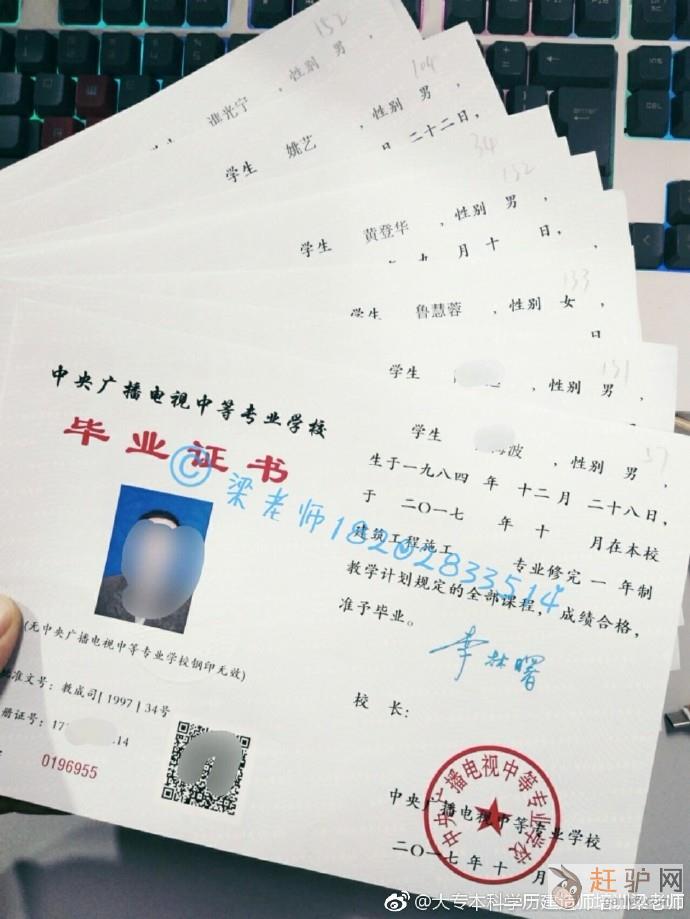 152
淮光宁 ，性别 男，
104
学生 姚艺 ，性别 男，
二十二日，
34
152
学生 黄登华 ，性别 男，
年 九 月 十 日，
133
学生 鲁慧蓉 ，性别 女，
日
151
学生 ，性别 男
37
学生 海波 ，性别 男，
生于一九八四 年 十二 月 二十八日，
于 二〇一七 年 十 月在本校
建筑工程施工 专业修完 一 年制
教学计划规定的全部课程，成绩合格，
准予毕业。
李林曙
校 长：
中央广播电视中等专业学校
二〇一七 年 十 月
中央广播电视中等专业学校
中央广播电视中等专业学校
毕业证书
©梁老师18202833514
(无中央广播电视中等专业学校钢印无效)
批准文号：教成司[1997]34号
册证号：17 14
0196955
赶驴网
@大专本科学历建造师培训梁老师